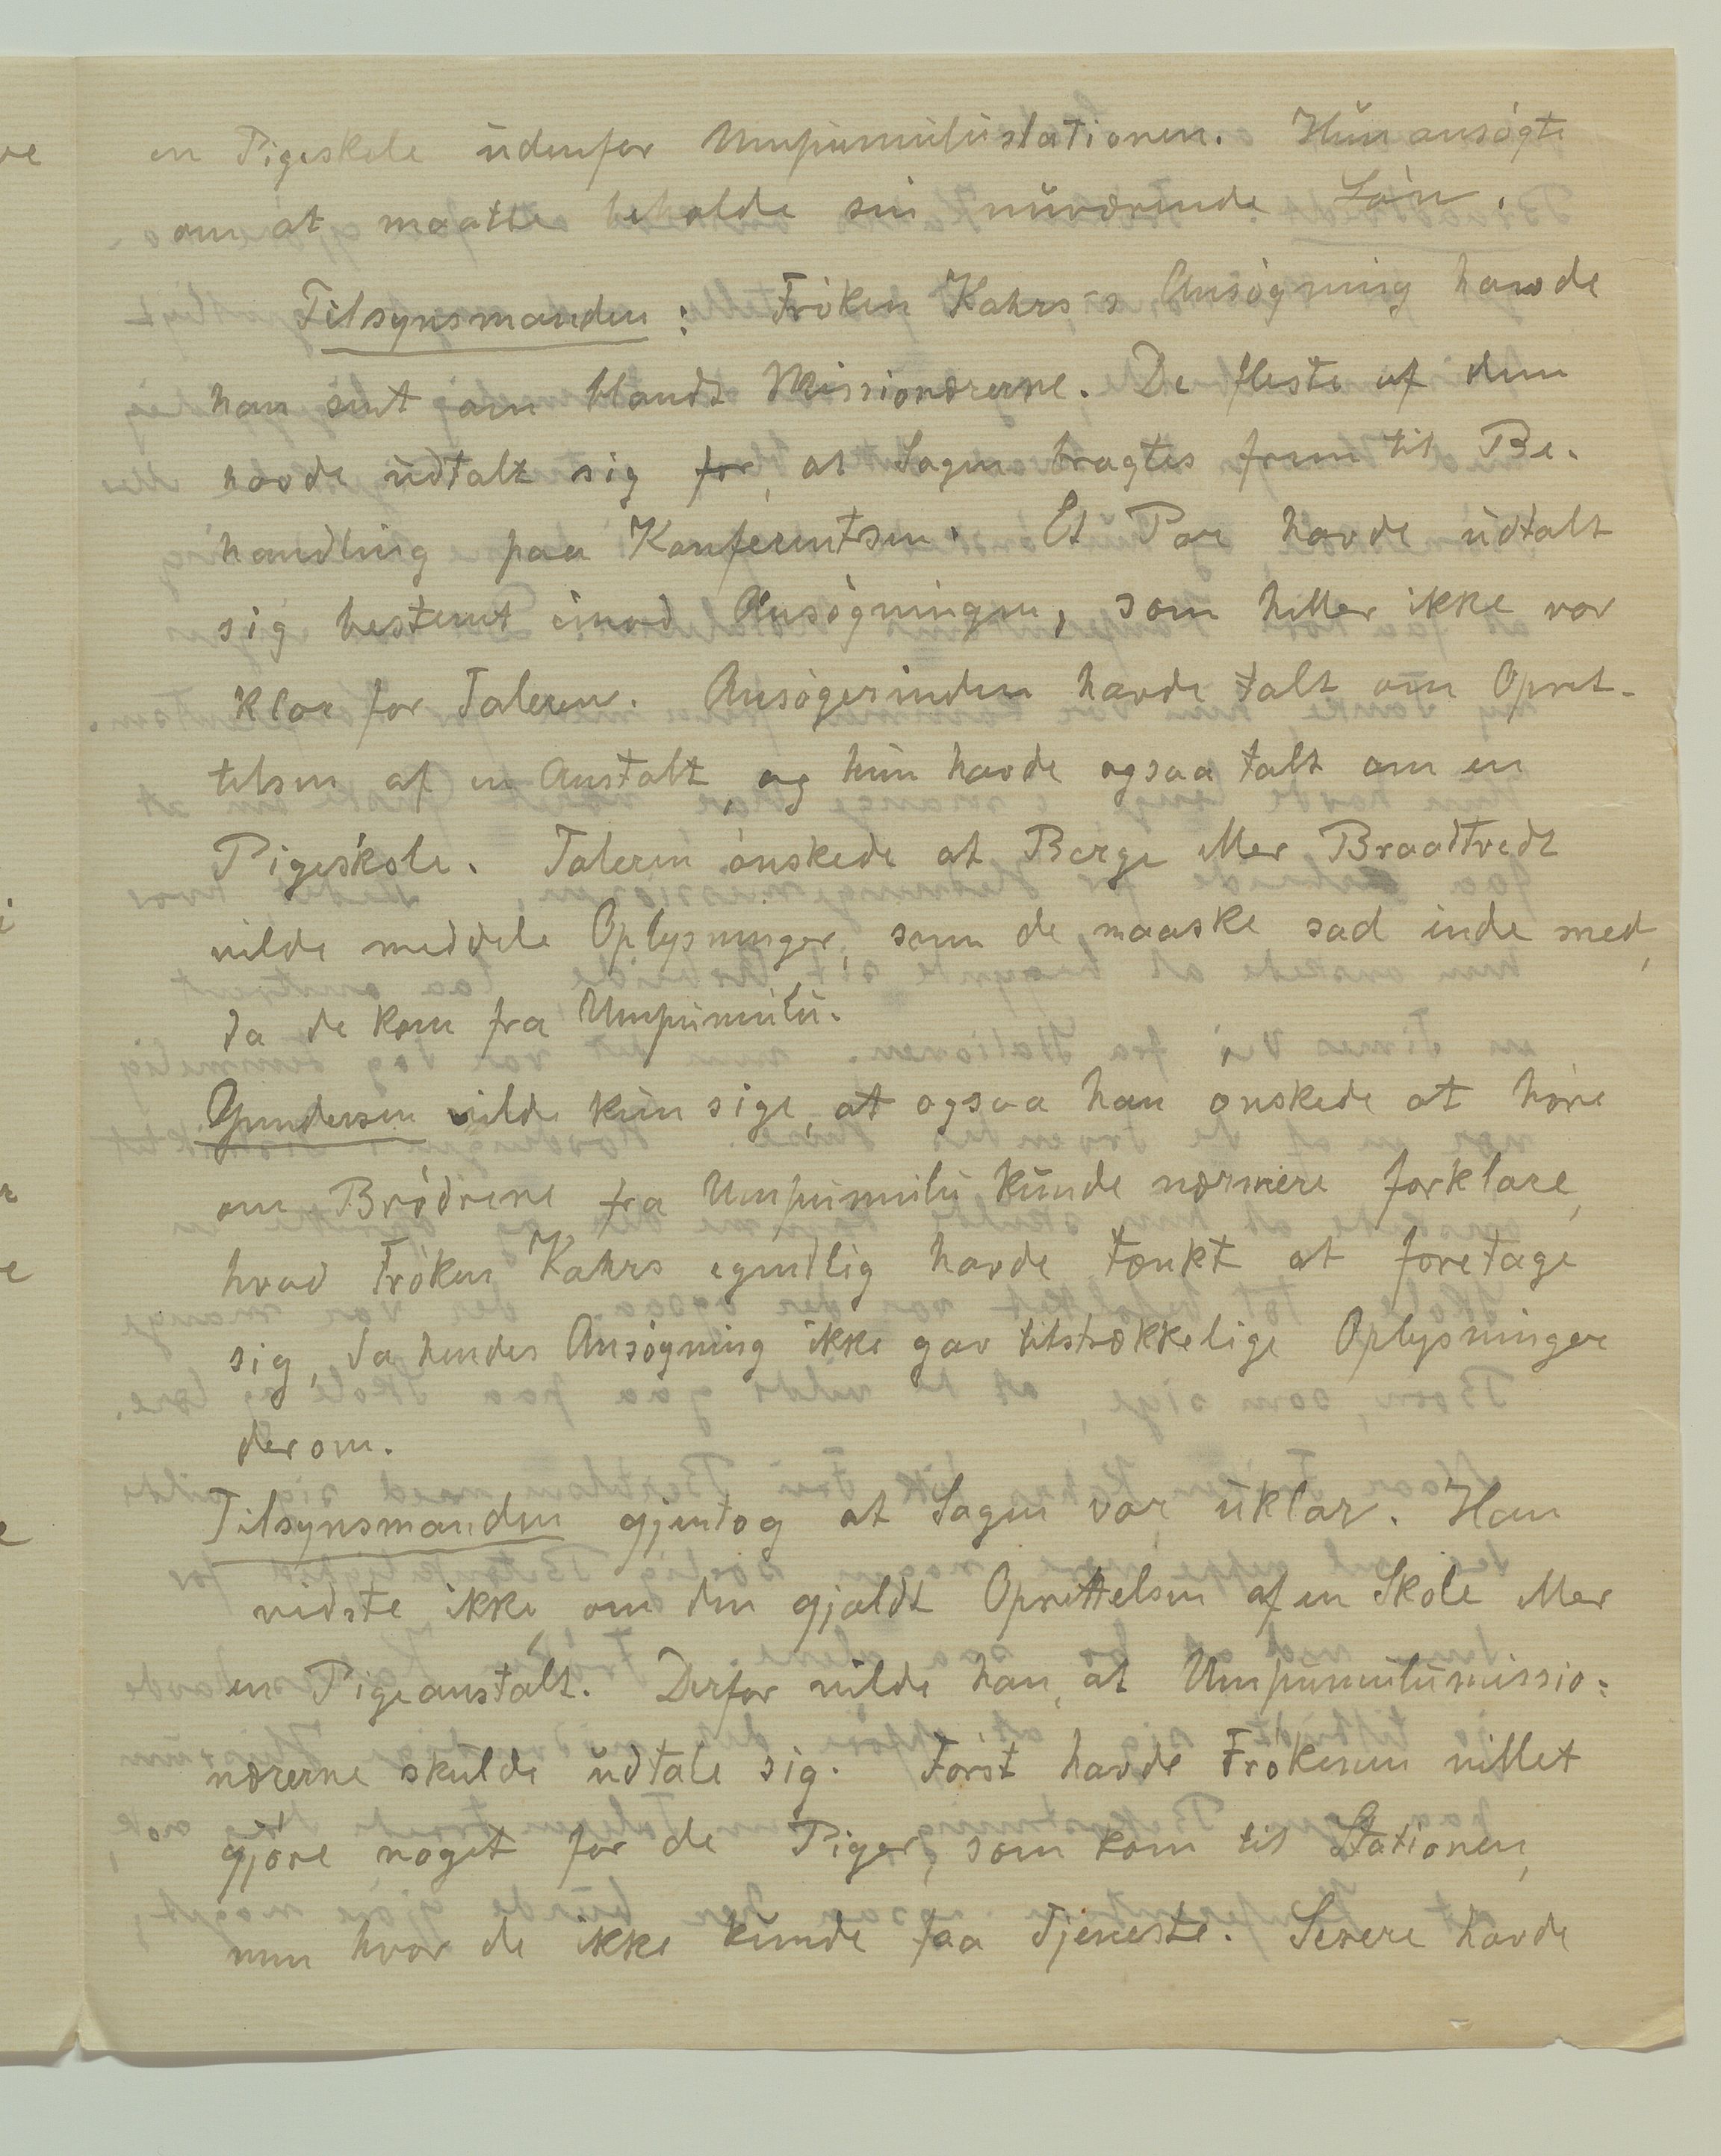 en Pigeskole udenfor Umpumulustationen. Hun ansøgte
om at maatte beholde sin nuværende Løn.
Tilsynsmanden: Frøken Kahrs's Ansøgning havde
han sendt om blandt Missionærerne. De fleste af dem
havde udtalt sig for, at Sagen bragtes frem til Be-
handling paa Konferentsen. Et Par havde udtalt
sig bestemt imod Ansøgningen, som heller ikke var
klar for Taleren. Ansøgerinden havde talt om Opret-
telsen af en Anstalt, og hun havde ogsaa talt om en
Pigeskole. Taleren ønskede at Borge eller Braadtvedt
vilde meddele Oplysninger, som de maaske sad inde med,
da de kom fra Umpumulu.
Gundersen vilde kun sige, at ogsaa han ønskede at høre
om Brødrene fra Umpumulu kunde nærmere forklare,
hvad Frøken Kahrs egentlig havde tænkt at foretage
sig, da hendes Ansøgning ikke gav tilstrækkelige Oplysninger
derom.
Tilsynsmanden gjentog at Sagen var uklar. Han
vidste ikke, om den gjaldt Oprettelsen af en Skole eller
en Pigeanstalt. Derfor vilde han, at Umpumulumissio-
nærerne skulde udtale sig. Først havde Frøkenen villet
gjøre noget for de Piger, som kom til Stationen,
men hvor de ikke kunde faa Tjeneste. Senere havde